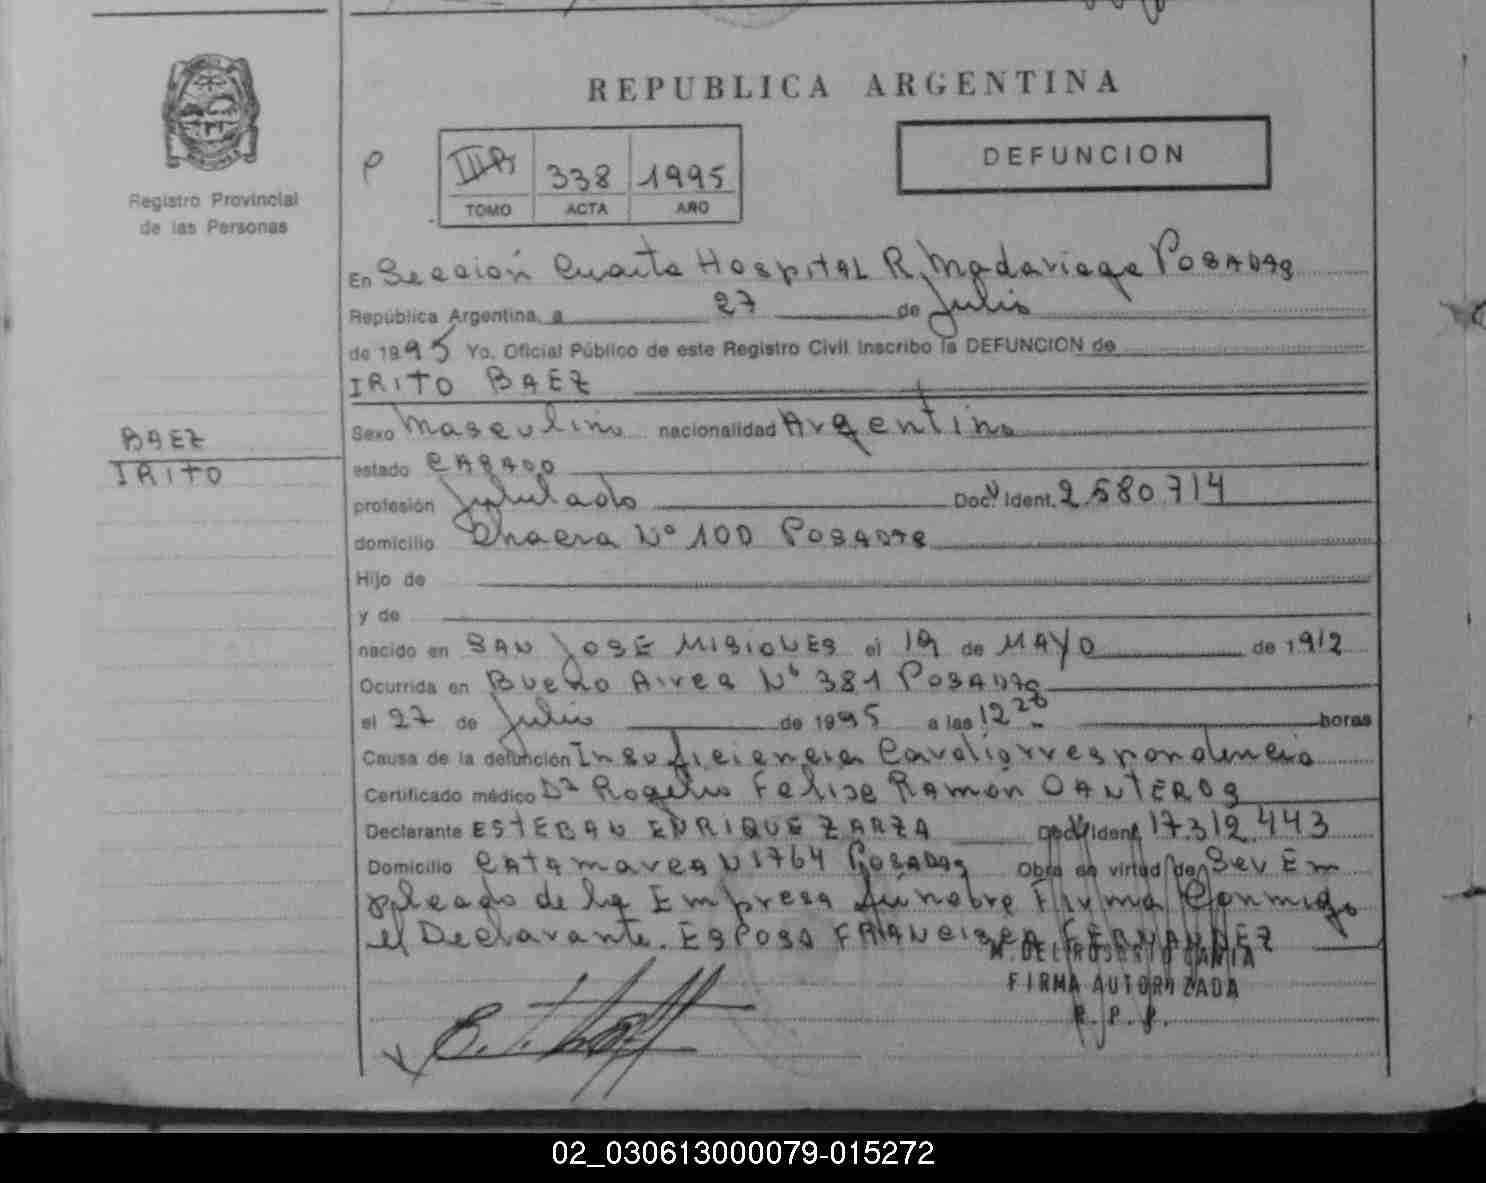 REPUBLICA ARGENTINA
DEFUNCION
Registro Provincial
de las Personas
338 1995
TOMO ACTA AÑO
En Sección Cuarta Hospital R. Madariaga POSADAS
República Argentina, a 27 de Julio
de 1995 Yo, Oficial Público de este Registro Civil inscribo la DEFUNCION de
IRITO BAEZ
BAEZ
IRITO
Sexo Masculino nacionalidad Argentino
estado CASADO
profesión Jubilado Doc. Ident. 2.580.714
domicilio Chacra Nº 100 POSADAS
Hijo de
y de
nacido en SAN JOSÉ MISIONES el 19 de MAYO de 1912
Ocurrida en Bueno Aires Nº 381 POSADAS
el 27 de Julio de 1995 a las 12 20 horas
Causa de la defunción Insuficiencia Cardiorrespondencia
Certificado médico Dr Rogelio Felise Ramón OANTEROS
Declarante ESTEBAN ENRIQUE ZARZA Doc. Ident. 17.312.443
Domicilio Catamarca N 1764 POSADAS Obra en virtud de Ser Em
pleado de la Empresa Fúnebre Firma Conmigo
el Declarante. ESPOSA FRANCISCA FERNANDEZ
M. DEL ROSARIO
FIRMA AUTORIZADA
R. P. P.
02_030613000079-015272